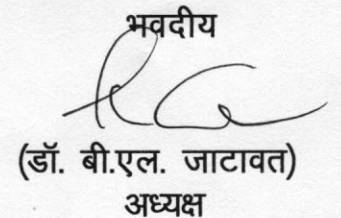 भवदीय
(डॉ. बी.एल. जाटावत)
अध्यक्ष